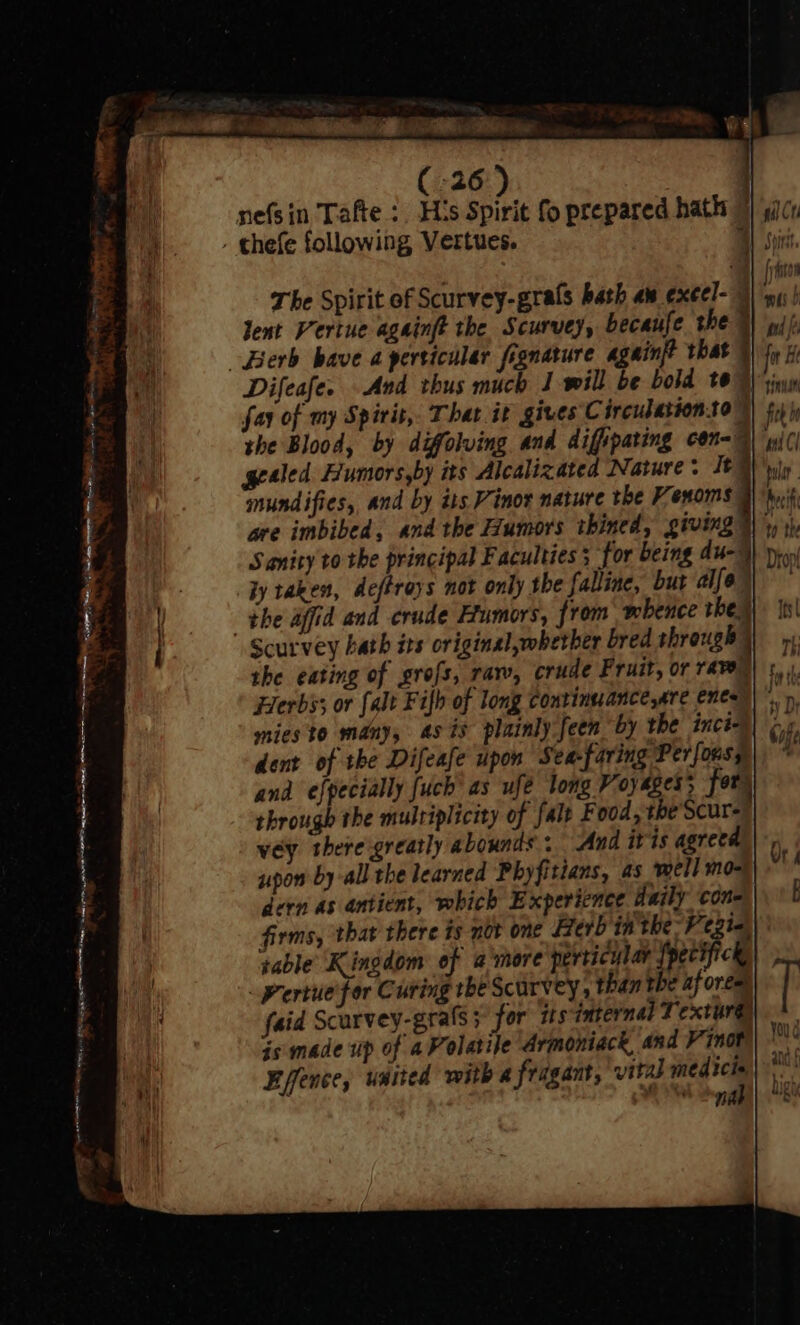 (26)
neſs in Taſte : His Spirit ſo prepared hath
theſe following Vertues.
The Spirit of Scurvey-graſs hath an excel-
lent Vertue againſt the Scurvey, becauſe the
Herb have a perticular ſignature againſt that
Diſeaſe. And thus much I will be bold to
ſay of my Spirit, That it gives Circulation to
the Blood, by diſſolving and diſſipating con-
gealed Humors, by its Alcalizated Nature : It
mundifies, and by its Vinor nature the Venoms
are imbibed, and the Humors thined, giving
Sanity to the principal Faculties ; for being du-
ly taken, deſtroys not only the ſalline, but alſo
the aſſid and crude Humors, from whence the
Scurvey hath its original, whether bred through
the eating of groſs, raw, crude Fruit, or raw
Herbs; or ſalt Fiſh of long continuance, are ene-
mies to many, as is plainly ſeen by the inci-
dent of the Diſeaſe upon Sea-faring Perſons,
and eſpecially ſuch as uſe long Voyages ; for
through the multiplicity of ſalt Food, the Scur-
vey there greatly abounds : And it is agreed
upon by all the learned Phyſitians, as well mo-
dern as antient, which Experience daily con-
firms, that there is not one Herb in the Vegi-
table Kingdom of a more perticular ſpecifick
Vertue for Curing the Scurvey, than the afore-
ſaid Scurvey-graſs ; for its internal Texture
is made up of a Volatile Armoniack and Vinor
Eſſence, united with a fragant, vital medici-
nal